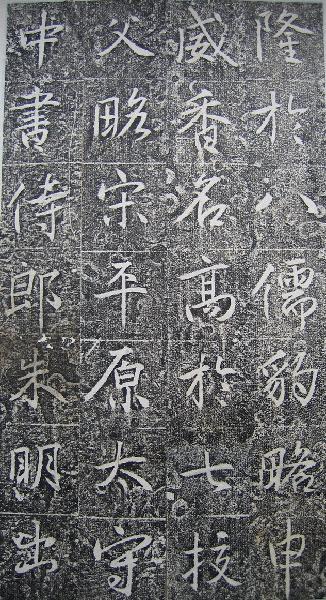 隆於八儒豹略申
威香名高於七校
父略宋平原太守
中書侍郎朱明出